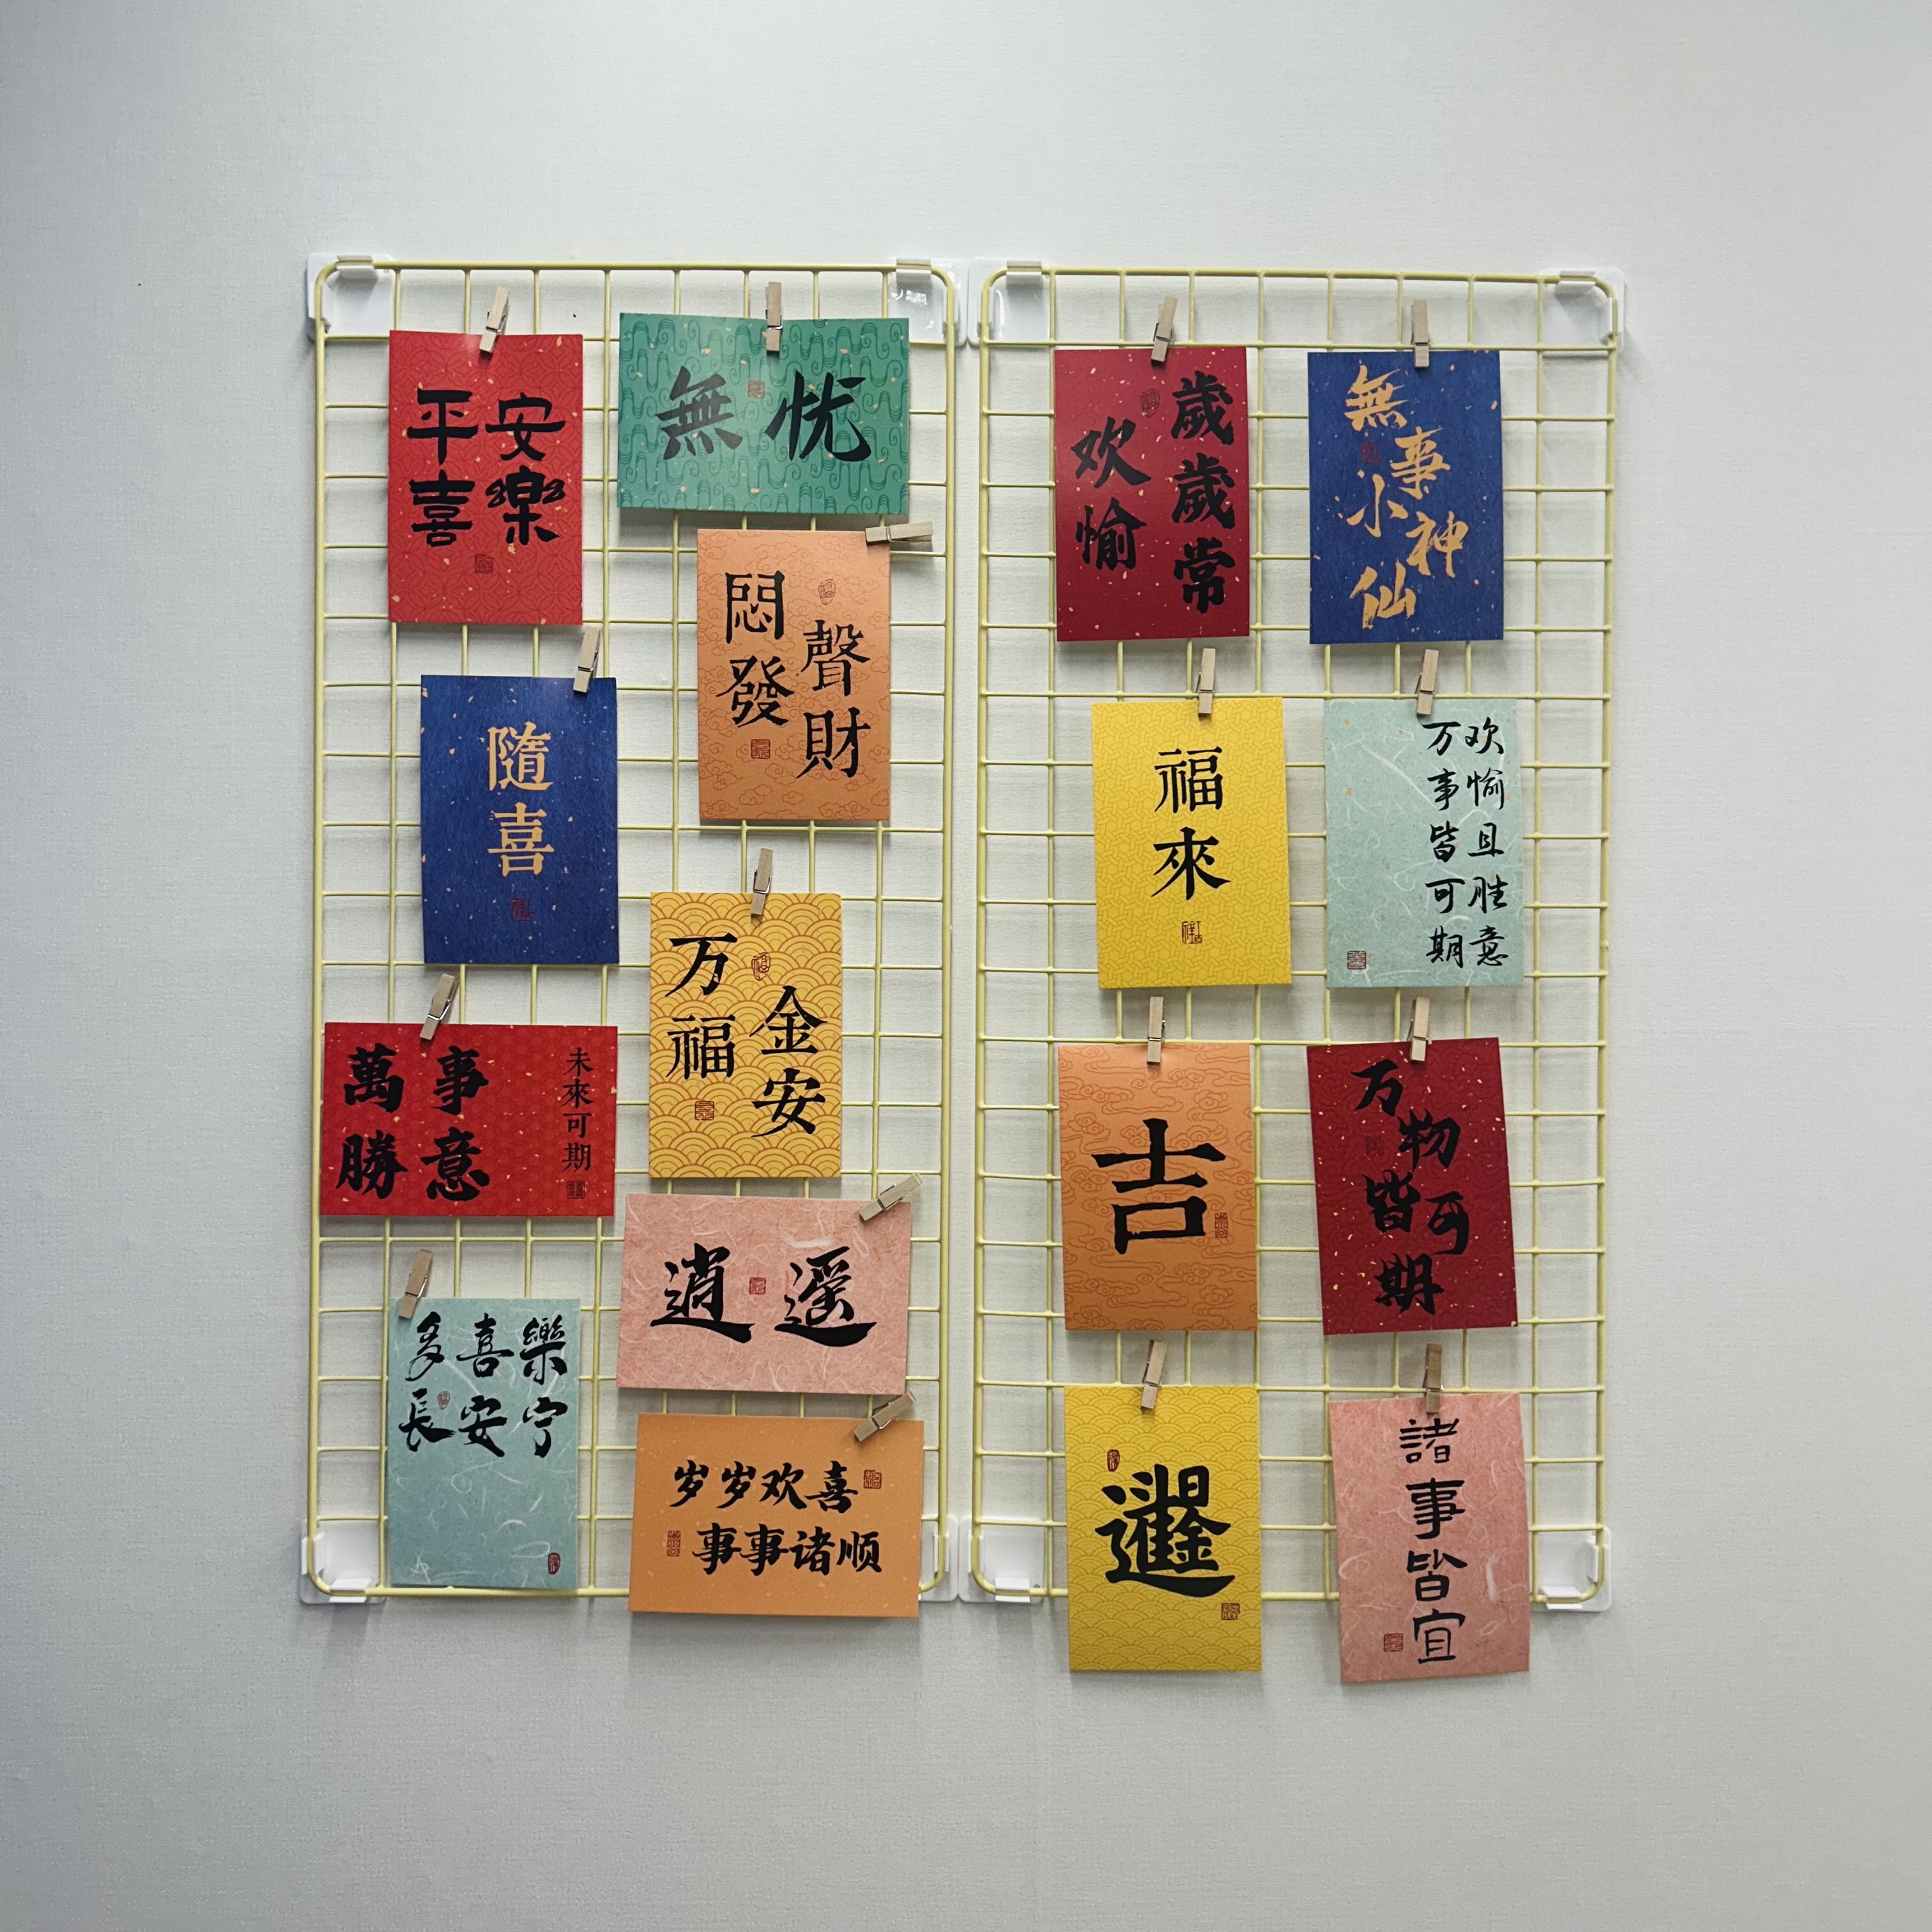 平安
喜樂
無忧
悶聲
發財
隨喜
万金
福安
萬事
勝意
未來可期
逍遥
多喜樂
長安宁
岁岁欢喜
事事诸顺
歲歲常
欢愉
無事小神仙
福來
欢愉且胜意
万事皆可期
吉
万物皆可期
諸事皆宜